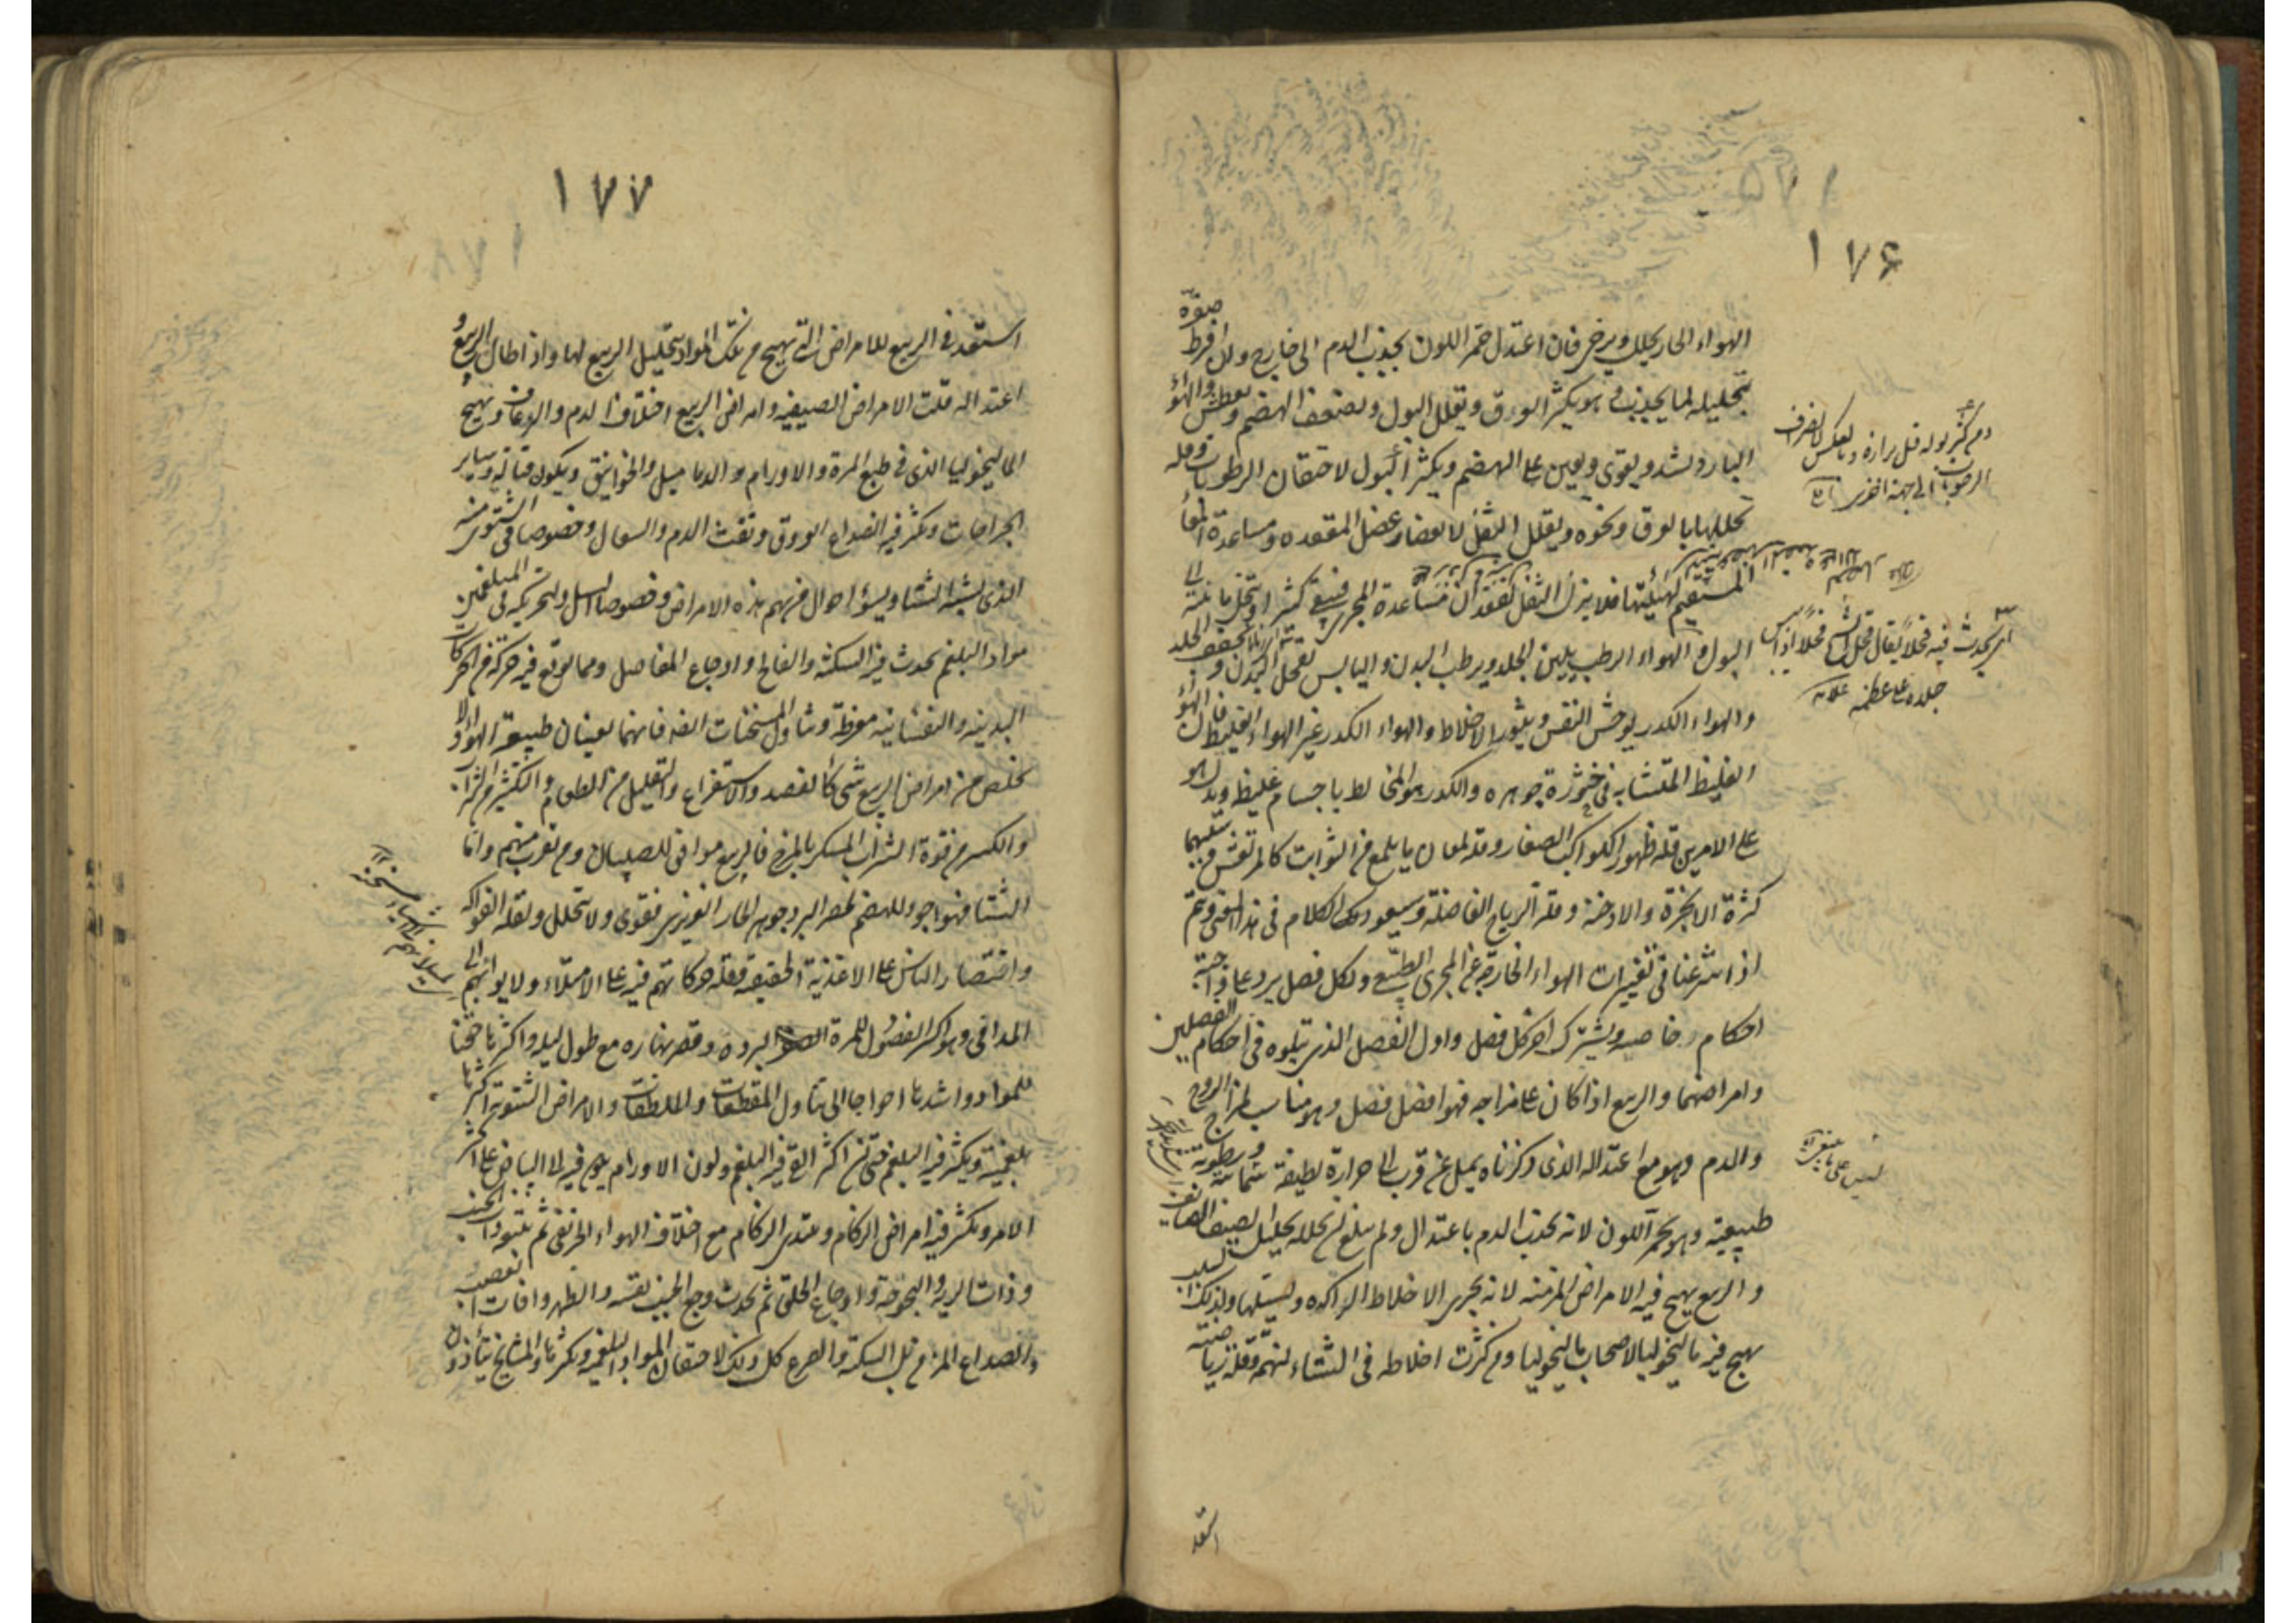 ١٧۶
الهواء الحار يحلل ويرخى فان اعتدل حمر اللون بجذب الدم الى خارج وان افرط صفره
بتحليله لما يجذب وهو يكثر العرق ويقلل البول ويضعف الهضم ويعطش والهواء
البارد يشد ويقوى ويعين على الهضم ويكثر البول لاحتقان الرطوبات وقلة
تحللها بالعرق ونحوه ويقلل الثفل لانعصار عضل المقعده ومساعدة المعا
المستقيم لهيئتها فلا ينزل الثفل لفقدان مساعدة المجرى فيبقى كثيرا ويتحلل مائيته الى
البول والهواء الرطب يلين الجلد ويرطب البدن واليابس يقحل البدن ويجفف الجلد
والهواء الكدر يوحش النفس ويثور الاخلاط والهواء الكدر غير الهواء الغليظ فان الهواء
الغليظ المتشابه فى خثورة جوهره والكدر هو المخالط باجسام غليظه ويدل
على الامرين قلة ظهور الكواكب الصغار وقلة لمعان ما يلمع من الثوابت كالمرتعش وسببهما
كثرة الابخرة والادخنة وقلة الرياح الفاضلة وسيعود لك الكلام فى هذا المعنى ويتم
اذا شرعنا فى تغييرات الهواء الخارجة عن المجرى الطبيعى ولكل فصل يرد على واجبه
احكام خاصه ويشترك اخر كل فصل واول الفصل الذى يتلوه فى احكام الفصلين
وامراضهما والربيع اذا كان على مزاجه فهو افضل فصل وهو مناسب لمزاج الروح
والدم وهو مع اعتداله الذى ذكرناه يميل عن قرب الى حرارة لطيفة سمائية ورطوبة
طبيعية وهو يحمر اللون لانه يجذب الدم باعتدال ولم يبلغ ان يحلله تحليل الصيف الصايف
والربيع يهيج فيه الامراض المزمنه لانه يجرى الاخلاط الراكده ويسيلها ولذلك السبب
يهيج فيه ماليخوليا لاصحاب ماليخوليا ومن كثرت اخلاطه فى الشتاء لنهمه وقلة رياضته
استعد
من كثر بوله قل برازه وبالعكس لانصراف
الرطوبات الى جهة اخرى
اى يحدث فيه قحلا يقال قحل الشئ قحلا اذا يبس
جلده على عظمه علامه
١٧٧
استعد فى الربيع للامراض التى تهيج من تلك المواد بتحليل الربيع لها واذا طال الربيع و
اعتداله قلت الامراض الصيفيه وامراض الربيع اختلاف الدم والرعاف وتهيج
الماليخوليا الذى فى طبع المرة والاورام والدماميل والخوانيق ويكون قتالة وساير
الخراجات ويكثر فيه انصداع العروق ونفث الدم والسعال وخصوصا فى الشتوى منه
الذى يشبه الشتا ويسوء احوال من بهم هذه الامراض وخصوصا السل ولتحريكه فى المبلغمين
مواد البلغم يحدث فيه السكته والفالج واوجاع المفاصل ومما يوقع فيه حركة من الحركات
البدنيه والنفسانيه مفرطة وتناول المسخنات ايضا فانهما يعينان طبيعة الهواء ولا
يخلص من امراض الربيع شئ كالفصد والاستفراغ والتقليل من الطعام والتكثير من الشراب
والكسر من قوة الشراب المسكر بالمزج فالربيع موافق للصبيان ومن تقرب منهم واما
الشتا فهو اجود للهضم لحصر البرد جوهر الحار الغريزى فيقوى ولا يتحلل ولقلة الفواكه
واقتصار الناس على الاغذية الخفيفه وقلة حركاتهم فيه على الامتلاء ولايوائهم الى
المدافى وهو اكثر الفصول للمرة السوداء لبرده وقصر نهاره مع طول ليله واكثرها حقنا
للمواد واشدها احواجا الى تناول المقطعات والملطفات والامراض الشتوية اكثرها
بلغمية ويكثر فيه البلغم حتى ان اكثر القئ فيه البلغم ولون الاورام يكون فيه الى البياض على اكثر
الامر ويكثر فيه امراض الزكام ويبتدى الزكام مع اختلاف الهواء الخريفى ثم يتبعه ذات الجنب
وذات الريه والبحوحة واوجاع الحلق ثم يحدث وجع الجنب نفسه والظهر وافات العصب
والصداع المزمن بل السكتة والصرع كل ذلك لاحتقان المواد البلغميه وتكثرها والمشايخ يتاذون